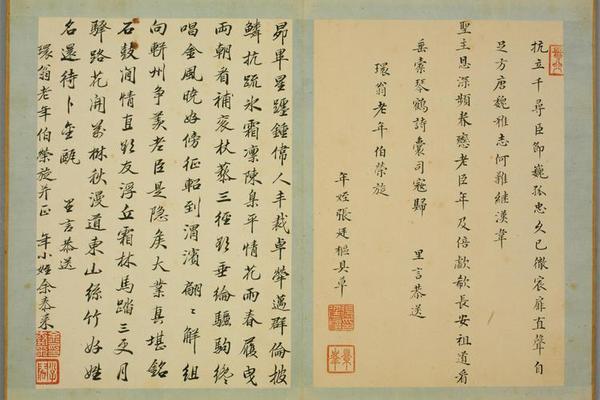 抗立千尋臣節巍孤忠久已徹宸扉直聲自
足方唐魏雅志何難繼漢韋
聖主恩深頻眷戀老臣年及倍歔欷長安祖道看
垂橐琴鶴詩囊司寇歸 里言恭送
環翁老年伯榮旋
年姪張廷樞具草
昴畢星躔鍾偉人丰裁卓犖邁群倫披
鱗抗疏氷霜凜陳臬平情花雨春履曳
兩朝看補袞杖藜三徑欲垂綸驪駒終
唱金風晚好傍征軺到渭濱 翩〻解組
向軿州爭羨老臣是隱矦大業真堪銘
石鼓閒情直欲友浮丘霜林馬踏三更月
驛路花開萬樹秋漫道東山絲竹好姓
名還待卜金甌 里言恭送
環翁老年伯榮旋并正 年小姪余泰來